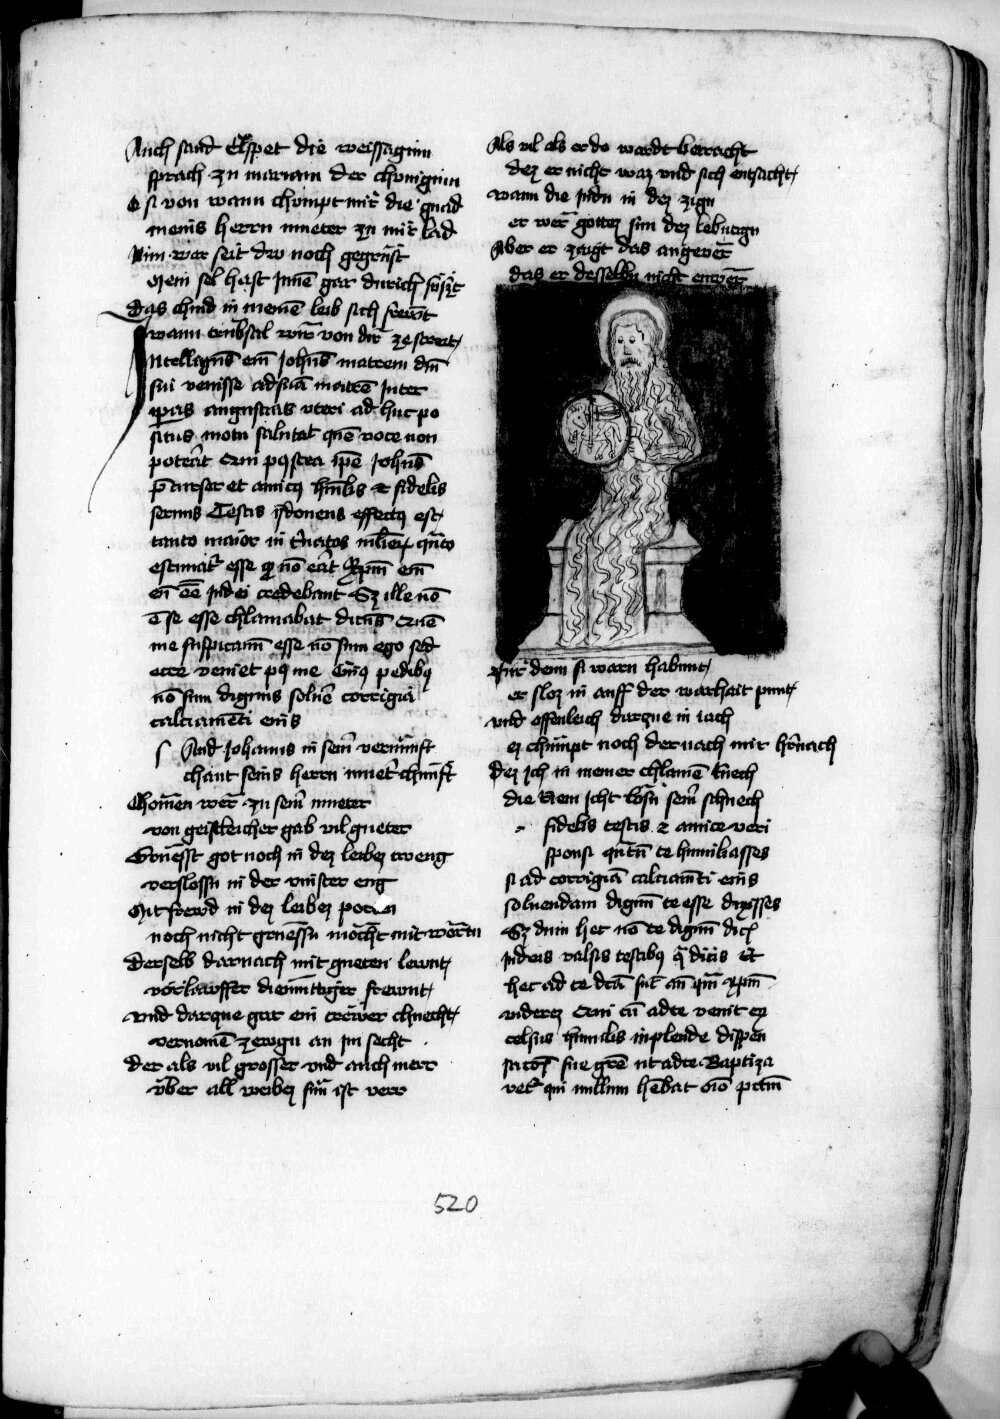 Auch sand Elspet die weissaginn
sprach zu mariam der chunginn
O si von wann chumpt mir die gnad
meins herrn mueter zu mir lad
Nim war seit dw noch gegrüst
Mein sel hast Inne gar durich süszt
Das chind in meinē leib sich frewt
wann trubsal wir von dir ze strewt
Intelligēs em Johēs matrem dn̄i
sui venisse ad suā matrē Inter
ipsas angustias uteri ad huc po
situs motu salutat quē voce non
poterat Cui postea ipē Johēs
p̄cursor et amicus humilis et fidelis
seruus Testis ydoneus effectus est
tanto maior in natos mulierum quāto
estimatur esse qd nō erat Xpm̄ em̄
eū eē Judei credebant Sz ille nō
ē se esse chlamabat dicens Quē
me suspicamī esse nō sum ego sed
ecce veniet post me Cuius pedibus
nō sum dignus soluere corrigia
calciamēti eius
Und Johanns in seinr vernunft
chant seins herrn muetr chunft
Chomen wer zu seinr mueter
von geistleicher gab vil gueter
Gruesst got noch in dez leibez tweng
verslossn in der vinster eng
Mit frewd in dez leibez
noch nicht gruessn mocht mit wortn
Derselb darnach mit gueten lewnt
vorlawffer diemuttiger frewnt
und darzue gar ein trewer chnecht
vernomē zewgn an im secht
der als vil grosser und auch merr
über all weibez sun ist verr
Als vil als er do wardt betracht
dez er nicht waz und sich entsacht
wann die Judn in dez zign
er wer gottez sun dez lebntign
Aber er zaigt das angever
das er desselbn nicht enwer
Fur denn si warn habunt
er sloz in auff der warhait punt
und offenleich darzue in iach
ez chumpt noch dernach mir hernach
Dez Ich in meiner chlamē tuech
die riem Icht losn seinr schuech
fidelis testis et amice veri
sponsi quātū te humiliasses
si ad corrigiā calciamēti eius
soluendam dignū te esse dixisses
Sz dum hec nō te dignū dicis
Judeis valsis testibus
hec ad te
videres Cui cū ad te venit
celsus humilis inplende dispen
sacōis sue grē ut ad te Baptiza
ret qui nullum habat oīo pctm̄
520